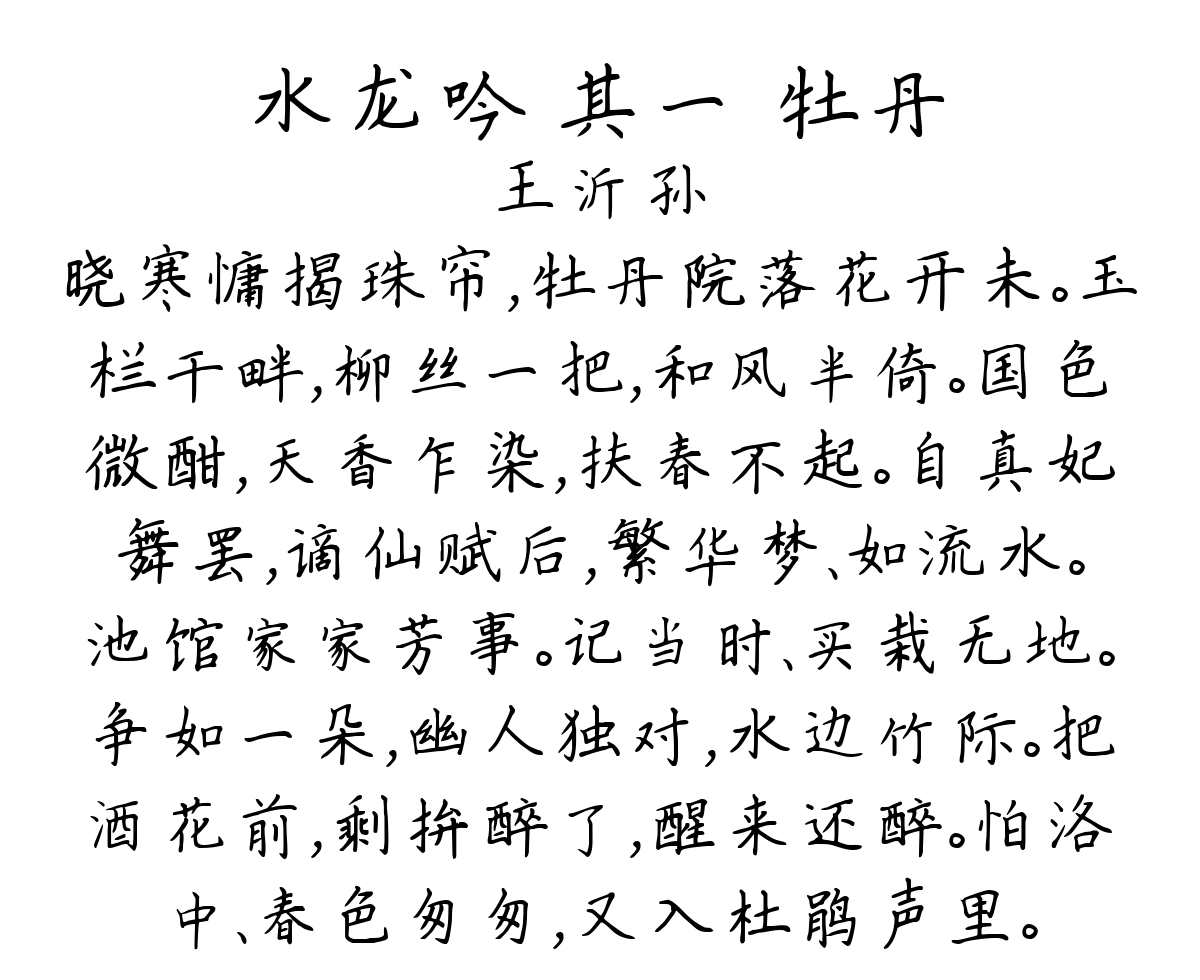 水龙吟 其一 牡丹
王沂孙
晓寒慵揭珠帘,牡丹院落花开未。玉
栏干畔,柳丝一把,和风半倚。国色
微酣,天香乍染,扶春不起。自真妃
舞罢,谪仙赋后,繁华梦、如流水。
池馆家家芳事。记当时、买栽无地。
争如一朵,幽人独对,水边竹际。把
酒花前,剩拚醉了,醒来还醉。怕洛
中、春色匆匆,又入杜鹃声里。